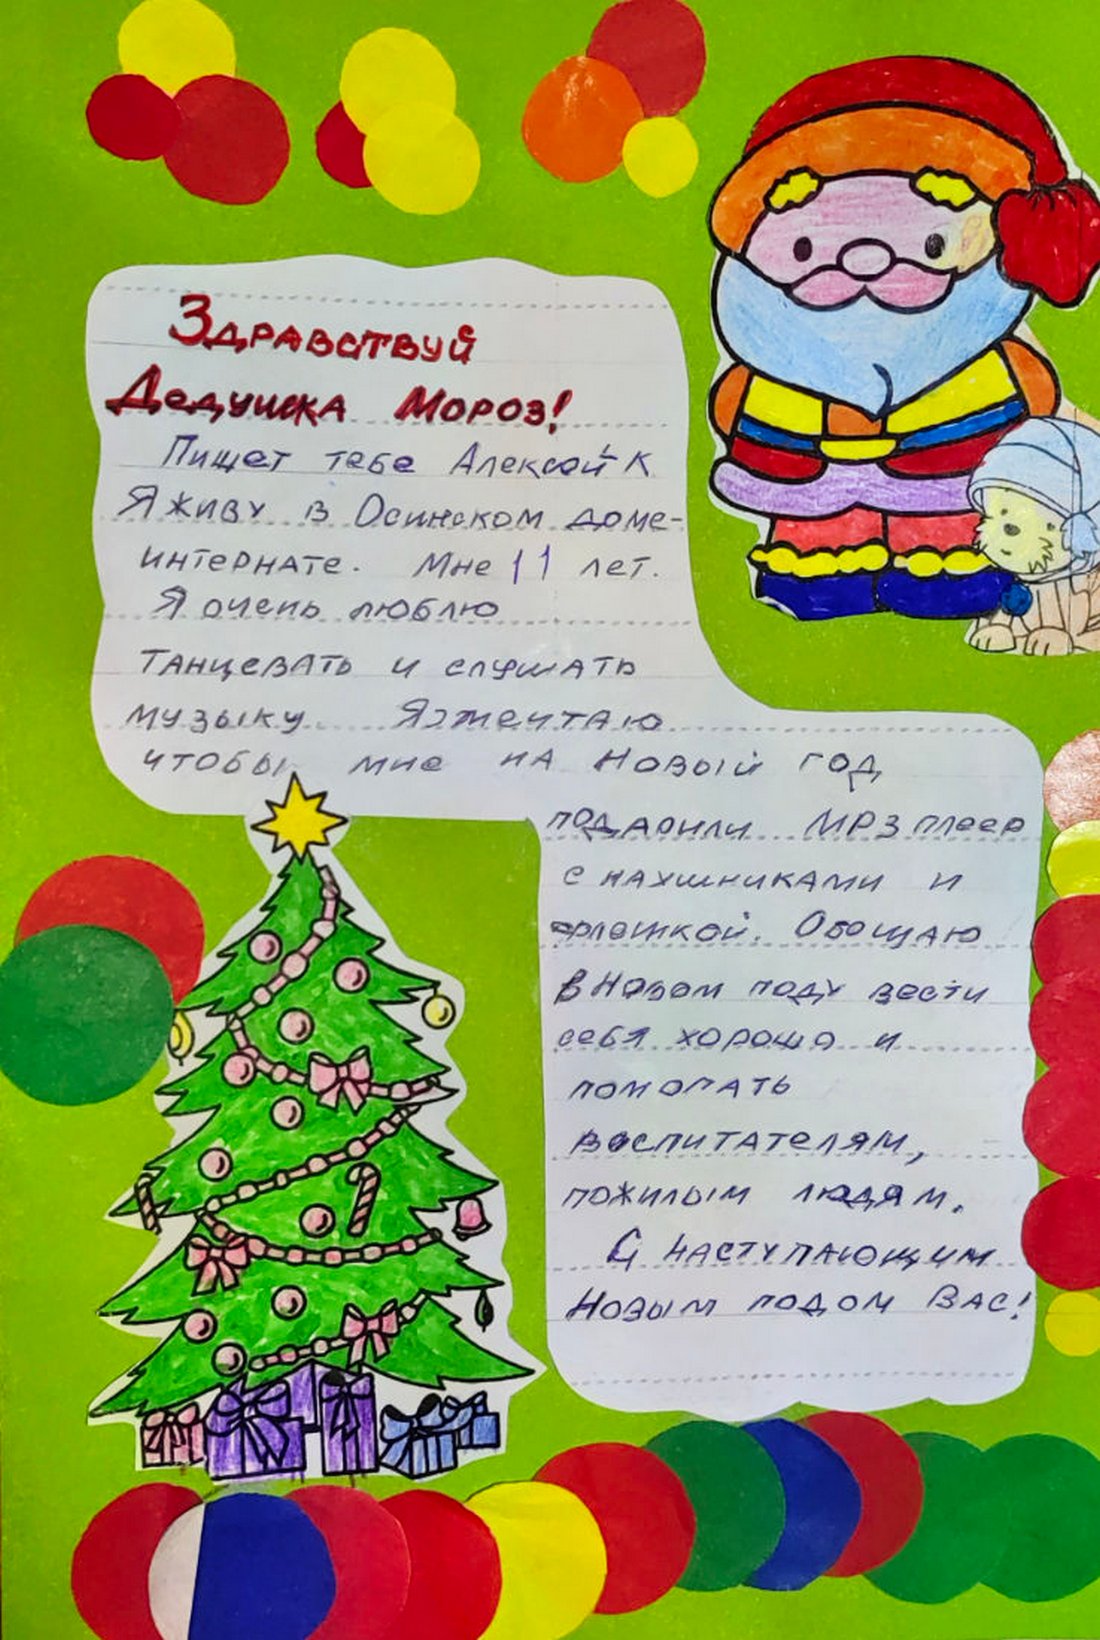 Здравствуй
Дедушка Мороз!
Пишет тебе Алексей К
Я живу в Осинском доме-
интернате. Мне 11 лет.
Я очень люблю
танцевать и слушать
музыку. Я мечтаю
чтобы мне на Новый год
подарили МР3 плеер
с наушниками и
флешкой. Обещаю
в Новом году вести
себя хорошо и
помогать
воспитателям,
пожилым людям.
С наступающим
Новым годом Вас!